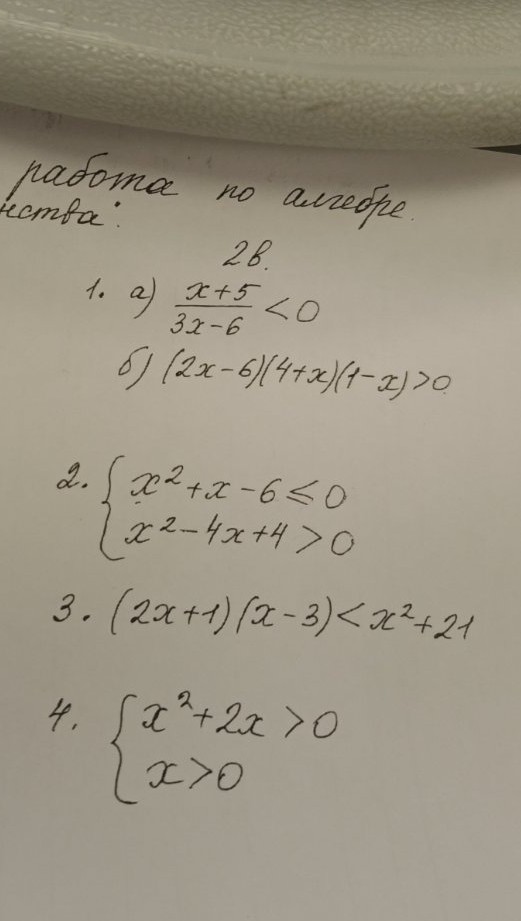 работа по алгебре.
нства:
2в.
1. а) (x+5)/(3x-6) < 0
б) (2x-6)(4+x)(1-x)>0
2. { x²+x-6≤0
x²-4x+4>0
3. (2x+1)(x-3)<x²+21
4. { x²+2x>0
x>0